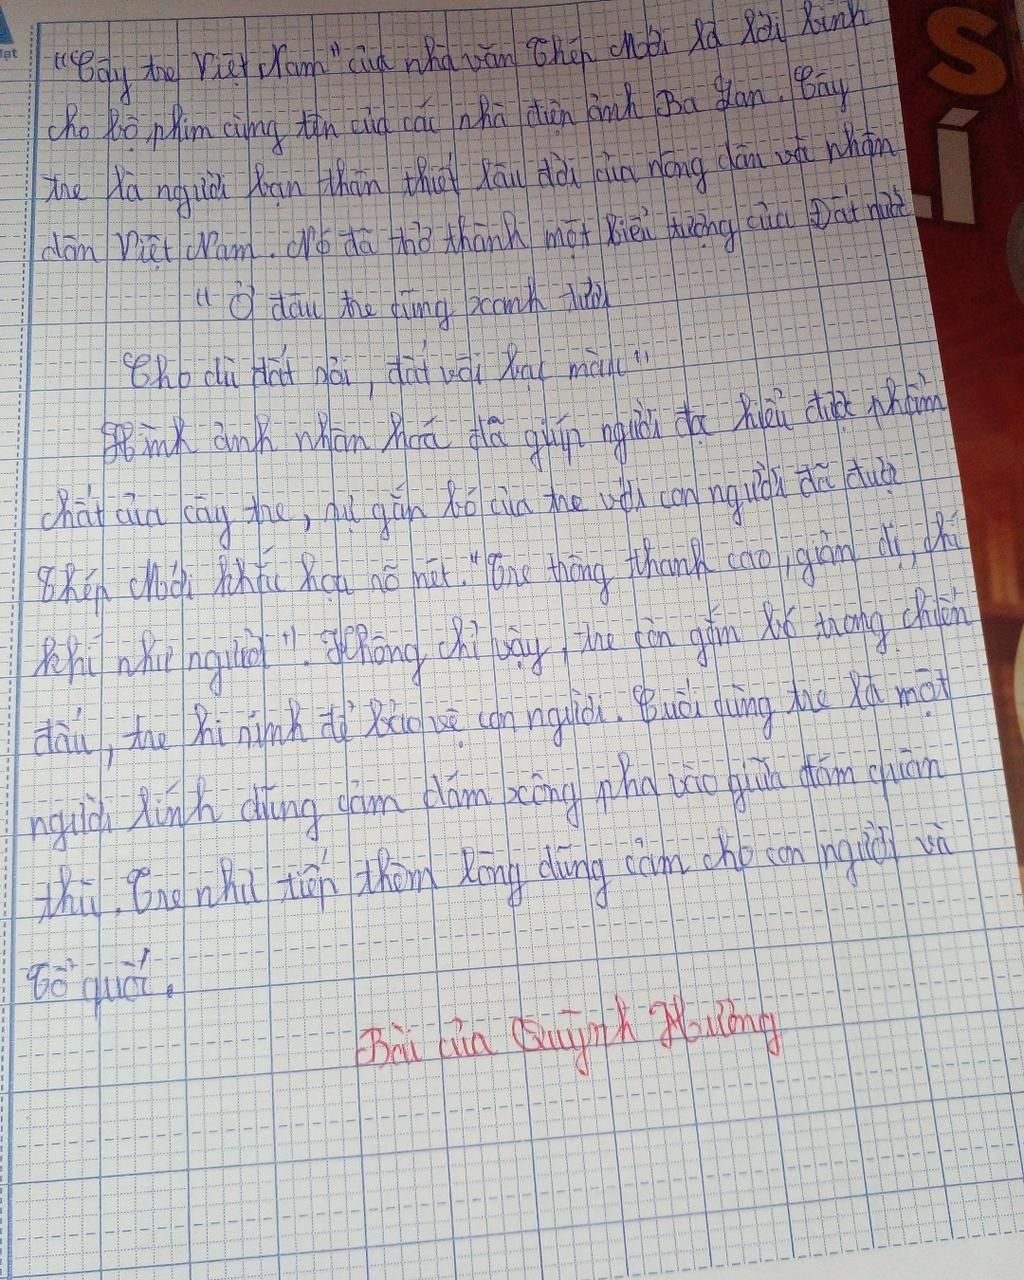 "Cây tre Việt Nam" của nhà văn Thép Mới là lời bình
cho bộ phim cùng tên của các nhà điện ảnh Ba Lan. Cây
tre là người bạn thân thiết lâu đời của nông dân và nhân
dân Việt Nam. Nó đã thở thành một biểu tượng của Đất nước
" Ở đâu tre cũng xanh tươi
Cho dù đất sỏi, đất vôi bạc màu"
Hình ảnh nhân hoá đã giúp người đọc hiểu được phẩm
chất của cây tre, sự gắn bó của tre với con người đã được
Thép Mới khắc họa rõ nét. "Tre trông thanh cao, giản dị, chí
khí như người". Không chỉ vậy, tre còn gắn bó trong chiến
đấu, tre hi sinh để bảo vệ con người. Cuối cùng tre là một
người lính dũng cảm dám xông pha vào giữa đám quân
thù. Tre như tiếp thêm lòng dũng cảm cho con người và
Tổ quốc.
Bài của Quỳnh Hương
S
Í